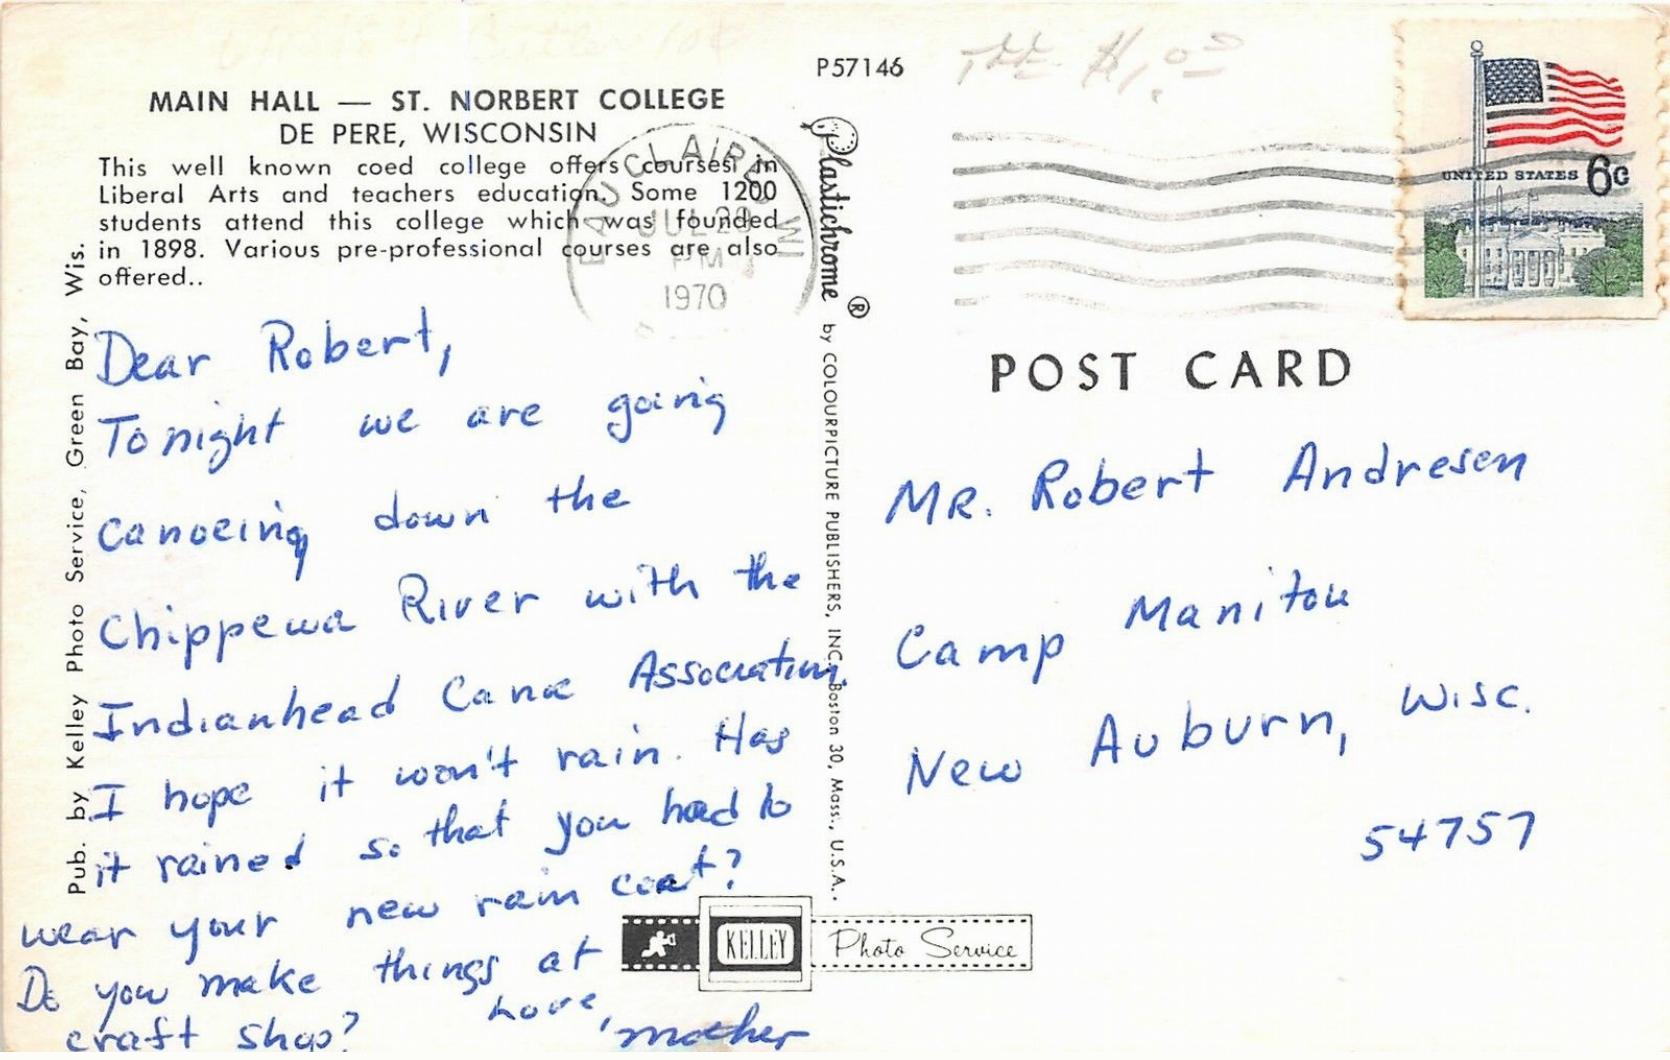 MAIN HALL — ST. NORBERT COLLEGE
DE PERE, WISCONSIN
This well known coed college offers courses in
Liberal Arts and teachers education. Some 1200
students attend this college which was founded
in 1898. Various pre-professional courses are also
offered..
Pub. by Kelley Photo Service, Green Bay, Wis.
EAU CLAIRE WI
JUL 29
PM
1970
P57146
Plastichrome ® by COLOURPICTURE PUBLISHERS, INC. Boston 30, Mass., U.S.A.
UNITED STATES 6c
POST CARD
Dear Robert,
Tonight we are going
canoeing down the
Chippewa River with the
Indianhead Canoe Association.
I hope it won't rain. Has
it rained so that you had to
wear your new rain coat?
Do you make things at
craft shop?
Love,
mother
Mr. Robert Andresen
Camp Manitou
New Auburn, Wisc.
54757
KELLEY Photo Service